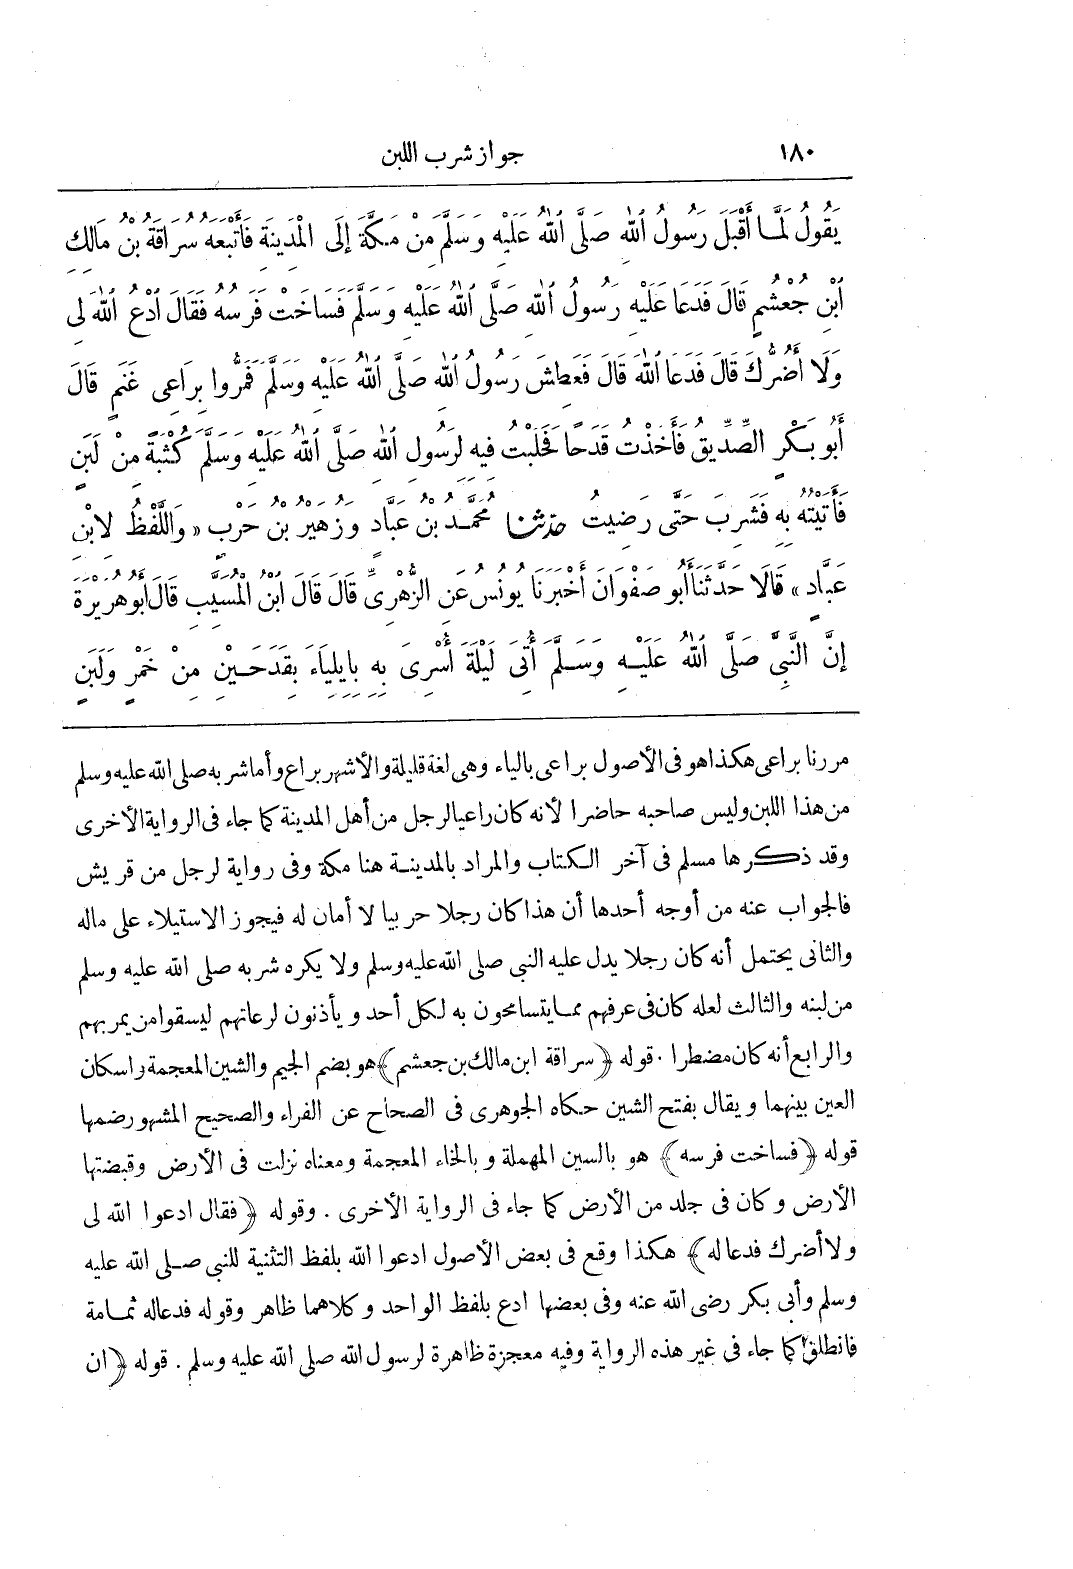 ١٨٠ جواز شرب اللبن
يَقُولُ لَمَّا أَقْبَلَ رَسُولُ اللّٰهِ صَلَّى اللّٰهُ عَلَيْهِ وَسَلَّمَ مِنْ مَكَّةَ إِلَى الْمَدِينَةِ فَأَتْبَعَهُ سُرَاقَةُ بْنُ مَالِكِ
ابْنِ جُعْشُمٍ قَالَ فَدَعَا عَلَيْهِ رَسُولُ اللّٰهِ صَلَّى اللّٰهُ عَلَيْهِ وَسَلَّمَ فَسَاخَتْ فَرَسُهُ فَقَالَ ادْعُ اللّٰهَ لِى
وَلَا أَضُرُّكَ قَالَ فَدَعَا اللّٰهَ قَالَ فَعَطِشَ رَسُولُ اللّٰهِ صَلَّى اللّٰهُ عَلَيْهِ وَسَلَّمَ فَمَرُّوا بِرَاعِى غَنَمٍ قَالَ
أَبُو بَكْرٍ الصِّدِّيقُ فَأَخَذْتُ قَدَحًا فَحَلَبْتُ فِيهِ لِرَسُولِ اللّٰهِ صَلَّى اللّٰهُ عَلَيْهِ وَسَلَّمَ كُثْبَةً مِنْ لَبَنٍ
فَأَتَيْتُهُ بِهِ فَشَرِبَ حَتَّى رَضِيتُ حدثنا مُحَمَّدُ بْنُ عَبَّادٍ وَزُهَيْرُ بْنُ حَرْبٍ « وَاللَّفْظُ لِابْنِ
عَبَّادٍ » قَالَا حَدَّثَنَا أَبُو صَفْوَانَ أَخْبَرَنَا يُونُسُ عَنِ الزُّهْرِىِّ قَالَ قَالَ ابْنُ الْمُسَيَّبِ قَالَ أَبُو هُرَيْرَةَ
إِنَّ النَّبِىَّ صَلَّى اللّٰهُ عَلَيْهِ وَسَلَّمَ أُتِىَ لَيْلَةَ أُسْرِىَ بِهِ بِإِيلِيَاءَ بِقَدَحَيْنِ مِنْ خَمْرٍ وَلَبَنٍ
مررنا براعى هكذا هو فى الأصول براعى بالياء وهى لغة قليلة والأشهر براع وأما شربه صلى الله عليه وسلم
من هذا اللبن وليس صاحبه حاضرا لأنه كان راعيا لرجل من أهل المدينة كما جاء فى الرواية الأخرى
وقد ذكرها مسلم فى آخر الكتاب والمراد بالمدينة هنا مكة وفى رواية لرجل من قريش
فالجواب عنه من أوجه أحدها أن هذا كان رجلا حربيا لا أمان له فيجوز الاستيلاء على ماله
والثانى يحتمل أنه كان رجلا يدل عليه النبي صلى الله عليه وسلم ولا يكره شربه صلى الله عليه وسلم
من لبنه والثالث لعله كان فى عرفهم مما يتسامحون به لكل أحد ويأذنون لرعاتهم ليسقوا من يمر بهم
والرابع أنه كان مضطرا . قوله ﴿سراقة ابن مالك بن جعشم﴾ هو بضم الجيم والشين المعجمة واسكان
العين بينهما ويقال بفتح الشين حكاه الجوهرى فى الصحاح عن الفراء والصحيح المشهور ضمها
قوله ﴿فساخت فرسه﴾ هو بالسين المهملة وبالخاء المعجمة ومعناه نزلت فى الأرض وقبضتها
الأرض وكان فى جلد من الأرض كما جاء فى الرواية الأخرى . وقوله ﴿فقال ادعوا الله لى
ولا أضرك فدعا له﴾ هكذا وقع فى بعض الأصول ادعوا الله بلفظ التثنية للنبي صلى الله عليه
وسلم وأبى بكر رضى الله عنه وفى بعضها ادع بلفظ الواحد وكلاهما ظاهر وقوله فدعا له ثمامة
فانطلق كما جاء فى غير هذه الرواية وفيه معجزة ظاهرة لرسول الله صلى الله عليه وسلم . قوله ﴿ان